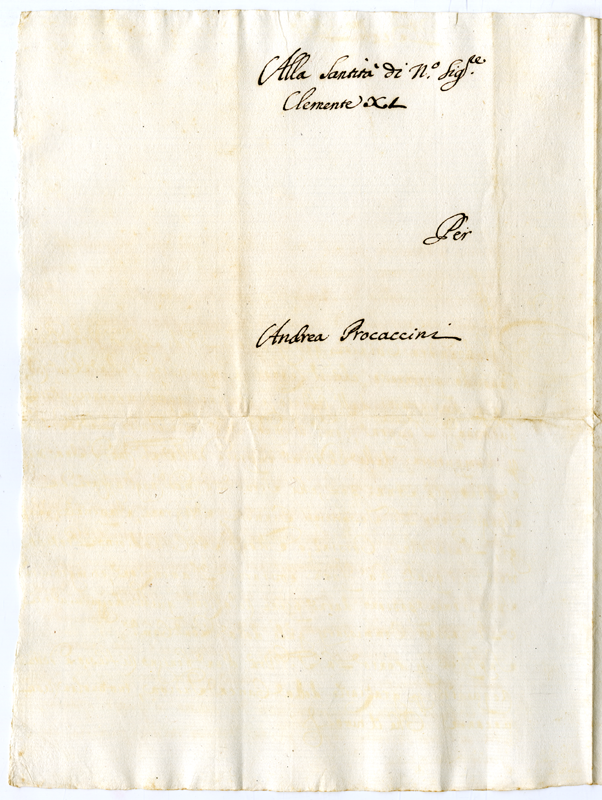 Alla Santità di N.º Sigʳᵉ.
Clemente XI
Per
Andrea Procaccini